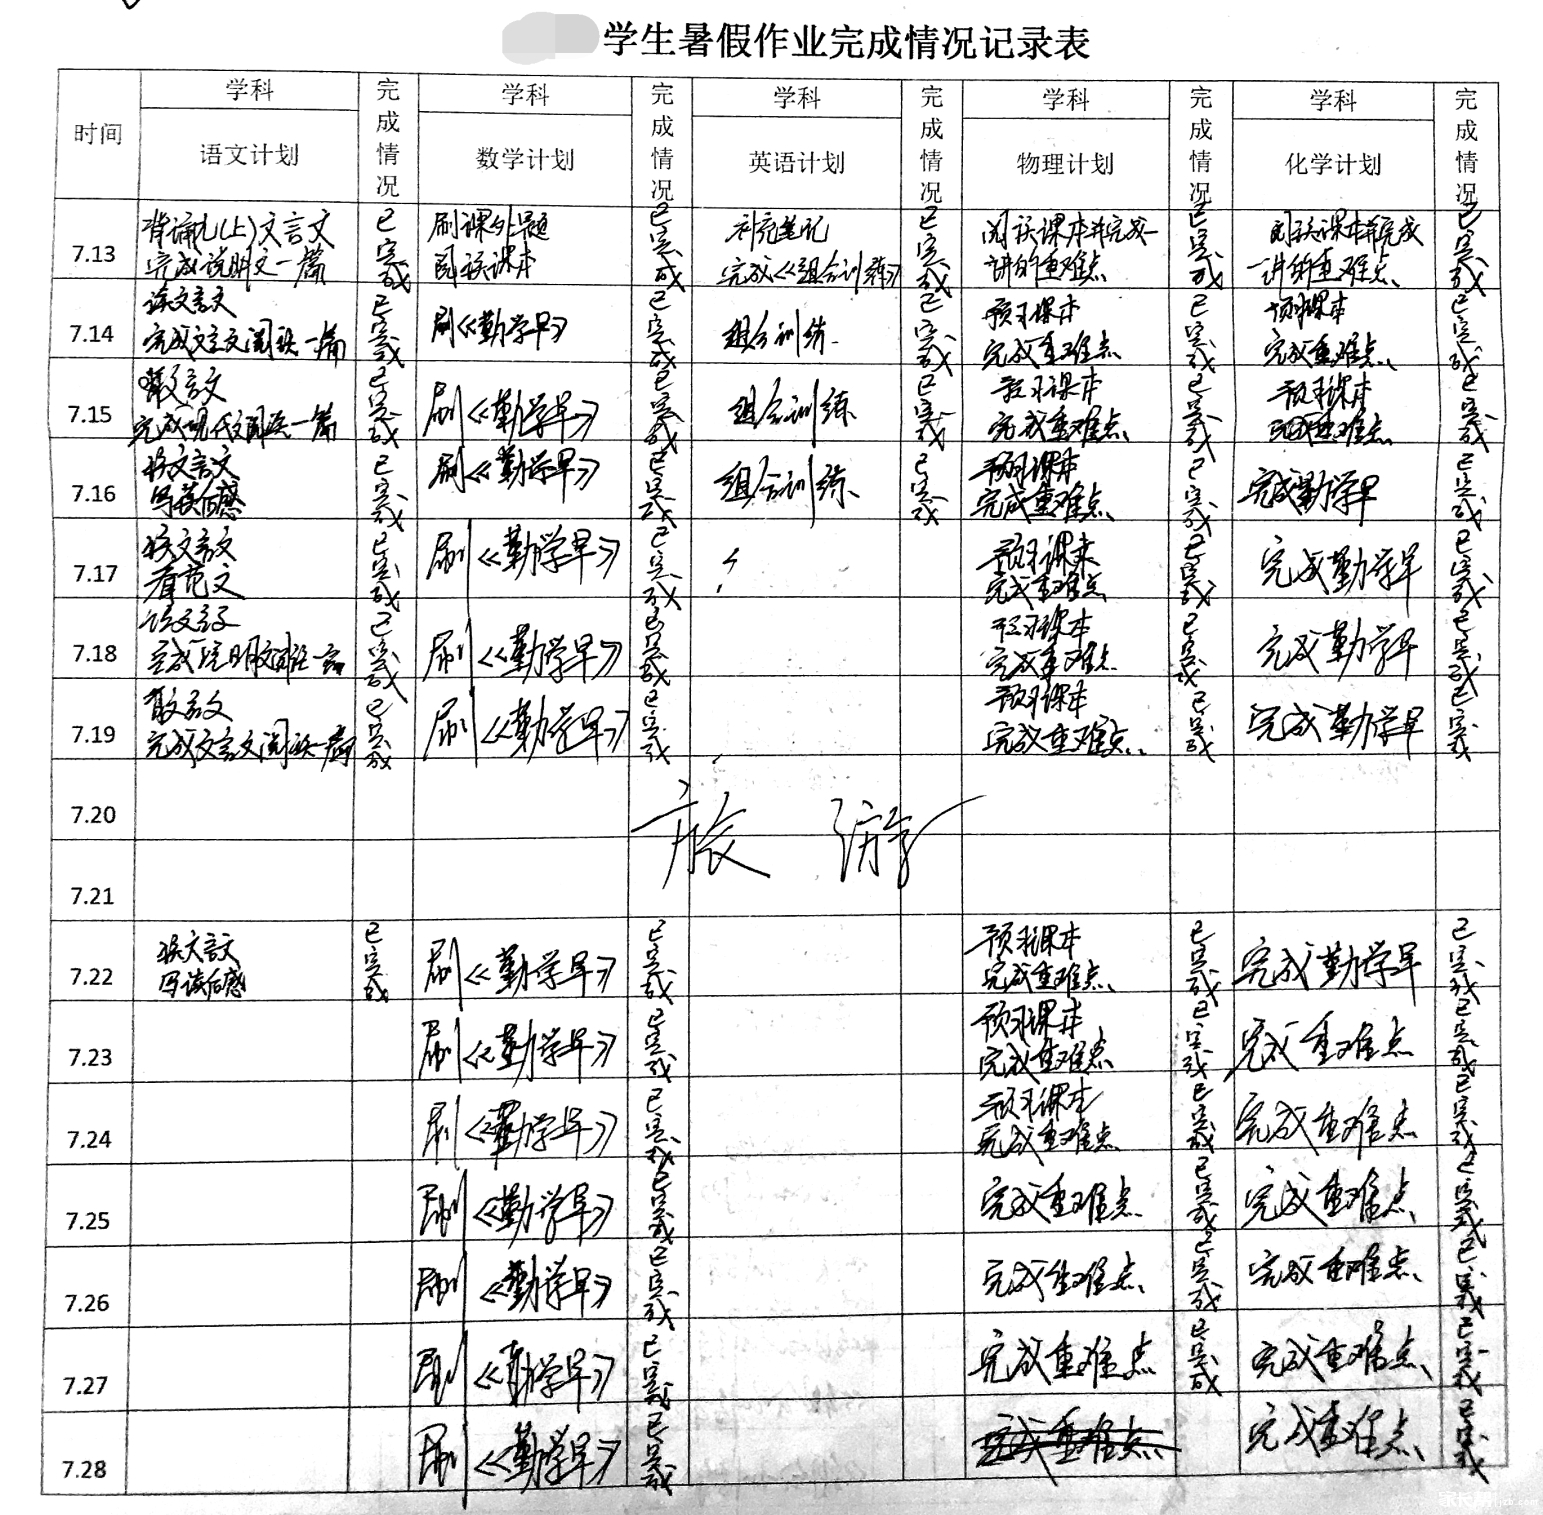 学生暑假作业完成情况记录表
时间 学科 完成情况 学科 完成情况 学科 完成情况 学科 完成情况 学科 完成情况
语文计划 数学计划 英语计划 物理计划 化学计划
7.13 背诵九(上)文言文 已完成 刷课外题 已完成 补充笔记 已完成 阅读课本并完成一 已完成 阅读课本并完成 已完成
完成说明文一篇 阅读课本 完成《组合训练》 讲的重难点 一讲的重难点
7.14 读文言文 已完成 刷《勤学早》 已完成 组合训练 已完成 预习课本 已完成 预习课本 已完成
完成文言文阅读一篇 完成重难点 完成重难点
7.15 文言文 已完成 刷《勤学早》 已完成 组合训练 已完成 预习课本 已完成 预习课本 已完成
完成现代文阅读一篇 完成重难点 完成重难点
7.16 读文言文 已完成 刷《勤学早》 已完成 组合训练 已完成 预习课本 已完成 完成勤学早 已完成
写读后感 完成重难点
7.17 读文言文 已完成 刷《勤学早》 已完成 预习课本 已完成 完成勤学早 已完成
看范文 完成重难点
7.18 已完成 刷《勤学早》 已完成 预习课本 已完成 完成勤学早 已完成
完成说明文阅读一篇 完成重难点
7.19 已完成 刷《勤学早》 已完成 预习课本 已完成 完成勤学早 已完成
完成文言文阅读一篇 完成重难点
7.20
旅 游
7.21
7.22 读文言文 已完成 刷《勤学早》 已完成 预习课本 已完成 完成勤学早 已完成
写读后感 完成重难点
7.23 刷《勤学早》 已完成 预习课本 已完成 完成重难点 已完成
完成重难点
7.24 刷《勤学早》 已完成 预习课本 已完成 完成重难点 已完成
完成重难点
7.25 刷《勤学早》 已完成 完成重难点 已完成 完成重难点 已完成
7.26 刷《勤学早》 已完成 完成重难点 已完成 完成重难点 已完成
7.27 刷《勤学早》 已完成 完成重难点 已完成 完成重难点 已完成
7.28 刷《勤学早》 已完成 完成重难点 完成重难点 已完成